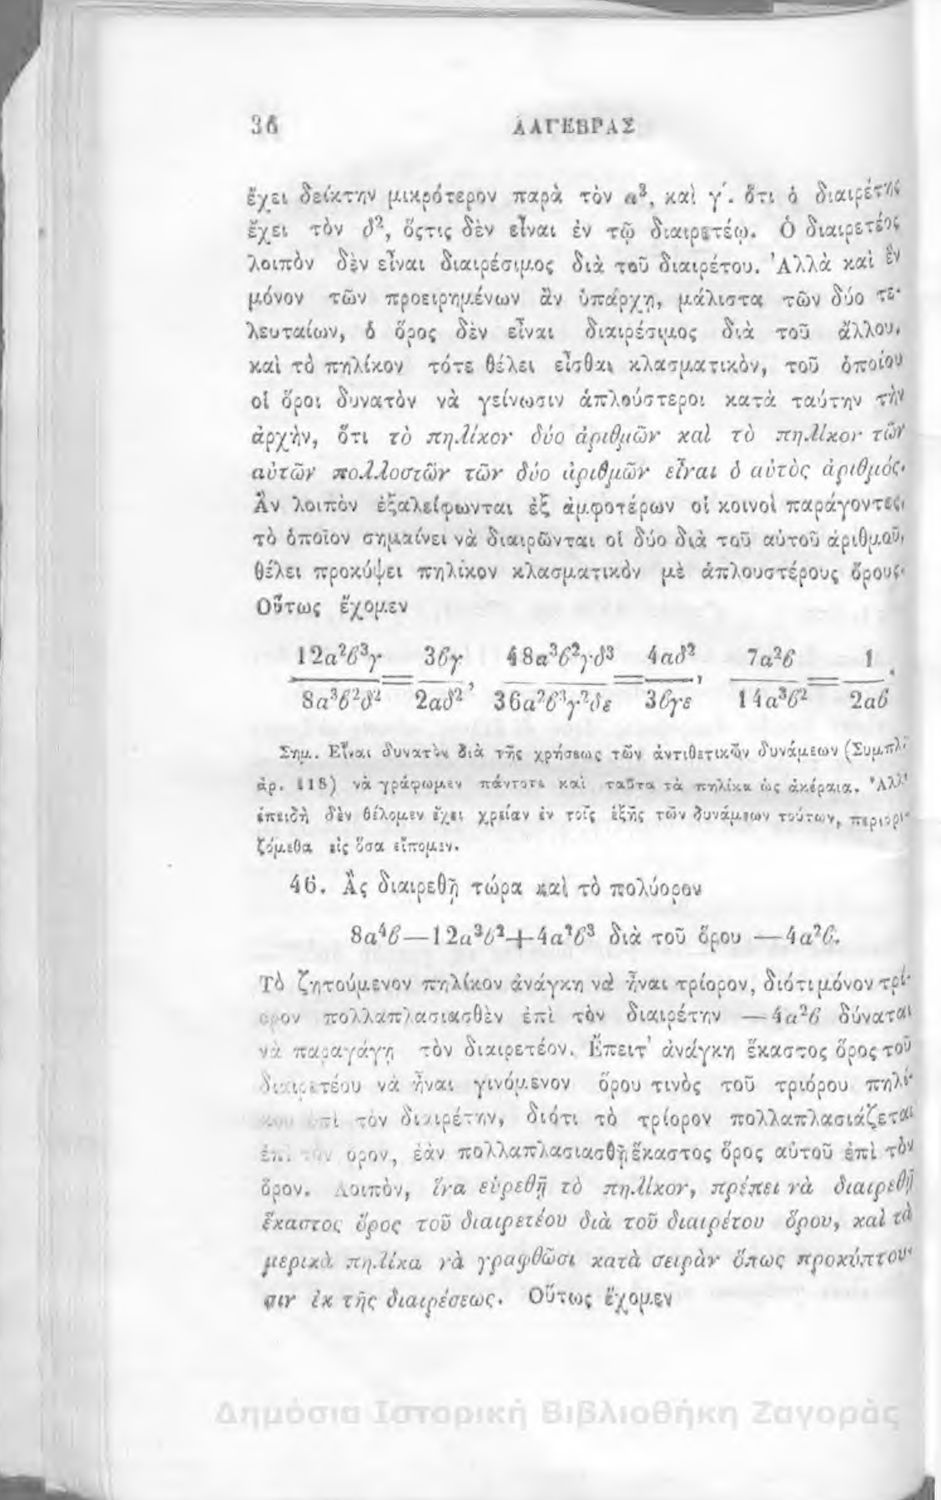 36 ΑΛΓΕΒΡΑΣ
ἔχει δείκτην μικρότερον παρὰ τὸν α³, καὶ γ΄. ὅτι ὁ διαιρέτης
ἔχει τὸν δ², ὅςτις δὲν εἶναι ἐν τῷ διαιρετέῳ. Ὁ διαιρετέος
λοιπὸν δὲν εἶναι διαιρέσιμος διὰ τοῦ διαιρέτου. Ἀλλὰ καὶ ἓν
μόνον τῶν προειρημένων ἂν ὑπάρχῃ, μάλιστα τῶν δύο τε-
λευταίων, ὁ ὅρος δὲν εἶναι διαιρέσιμος διὰ τοῦ ἄλλου,
καὶ τὸ πηλίκον τότε θέλει εἶσθαι κλασματικὸν, τοῦ ὁποίου
οἱ ὅροι δυνατὸν νὰ γείνωσιν ἁπλούστεροι κατὰ ταύτην τὴν
ἀρχὴν, ὅτι τὸ πηλίκον δύο ἀριθμῶν καὶ τὸ πηλίκον τῶν
αὐτῶν πολλοστῶν τῶν δύο ἀριθμῶν εἶναι ὁ αὐτὸς ἀριθμός.
Ἂν λοιπὸν ἐξαλείφωνται ἐξ ἀμφοτέρων οἱ κοινοὶ παράγοντες,
τὸ ὁποῖον σημαίνει νὰ διαιρῶνται οἱ δύο διὰ τοῦ αὐτοῦ ἀριθμοῦ,
θέλει προκύψει πηλίκον κλασματικὸν μὲ ἁπλουστέρους ὅρους.
Οὕτως ἔχομεν
12α²β³γ/8α³β²δ² = 3βγ/2αδ², 48α³β²γδ³/36α²β³γ²δε = 4αδ²/3βγε, 7α²β/14α³β² = 1/2αβ.
Σημ. Εἶναι δυνατὸν διὰ τῆς χρήσεως τῶν ἀντιθετικῶν δυνάμεων (Συμπλ.
ἀρ. 118) νὰ γράφωμεν πάντοτε καὶ ταῦτα τὰ πηλίκα ὡς ἀκέραια. Ἀλλ'
ἐπειδὴ δὲν θέλομεν ἔχει χρείαν ἐν τοῖς ἑξῆς τῶν δυνάμεων τούτων, περιορι-
ζόμεθα εἰς ὅσα εἴπομεν.
46. Ἂς διαιρεθῇ τώρα καὶ τὸ πολύορον
8α⁴β—12α³β²+4α²β³ διὰ τοῦ ὅρου —4α²β.
Τὸ ζητούμενον πηλίκον ἀνάγκη νὰ ἦναι τρίορον, διότι μόνον τρί-
ορον πολλαπλασιασθὲν ἐπὶ τὸν διαιρέτην —4α²β δύναται
νὰ παραγάγῃ τὸν διαιρετέον. Ἔπειτ' ἀνάγκη ἕκαστος ὅρος τοῦ
διαιρετέου νὰ ἦναι γινόμενον ὅρου τινὸς τοῦ τριόρου πηλί-
κου ἐπὶ τὸν διαιρέτην, διότι τὸ τρίορον πολλαπλασιάζεται
ἐπὶ τὸν ὅρον, ἐὰν πολλαπλασιασθῇ ἕκαστος ὅρος αὐτοῦ ἐπὶ τὸν
ὅρον. Λοιπὸν, ἵνα εὑρεθῇ τὸ πηλίκον, πρέπει νὰ διαιρεθῇ
ἕκαστος ὅρος τοῦ διαιρετέου διὰ τοῦ διαιρέτου ὅρου, καὶ τὰ
μερικὰ πηλίκα νὰ γραφθῶσι κατὰ σειρὰν ὅπως προκύπτου-
σιν ἐκ τῆς διαιρέσεως. Οὕτως ἔχομεν
Δημόσια Ιστορική Βιβλιοθήκη Ζαγοράς